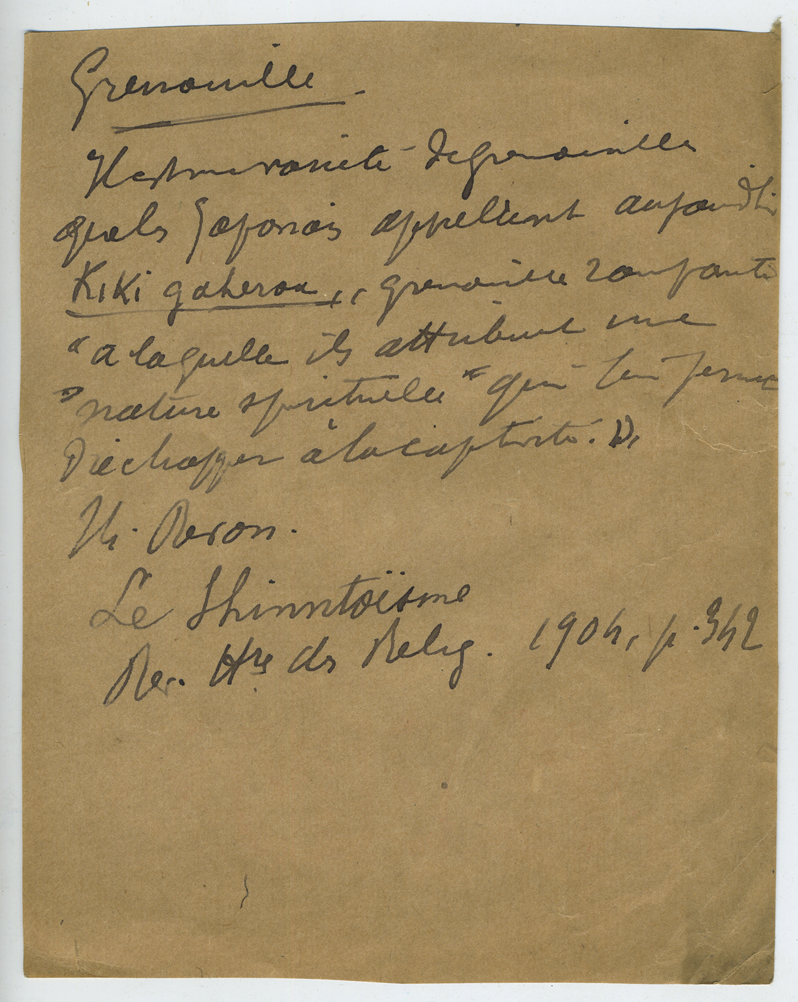 Grenouille.
Il est une variété de grenouille
que les Japonais appellent aujourd'hui
Kiki gaherou, "grenouille
"à laquelle ils attribuent une
"nature spirituelle" qui leur permet
d'échapper à la captivité.
Th. Revon.
Le Shinntoïsme
Rev. Hre des Relig. 1904, p. 342